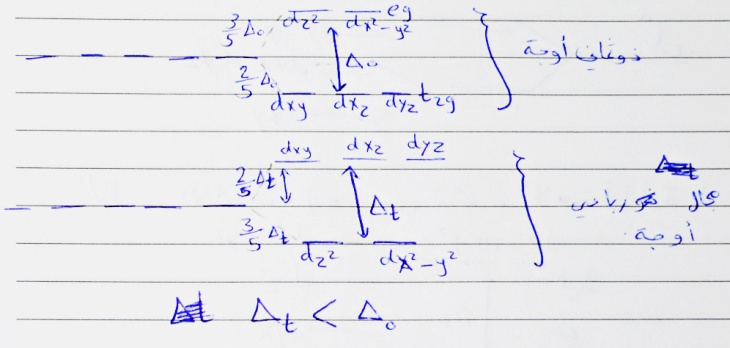 3/5 Δ₀ dz² dx²-y² eg
Δ₀
ذو ثماني أوجة
2/5 Δ₀ dxy dxz dyz t₂g
dxy dxz dyz
2/5 Δt
Δt
مجال ذو رباعي
أوجة
3/5 Δt dz² dx²-y²
Δt < Δ₀